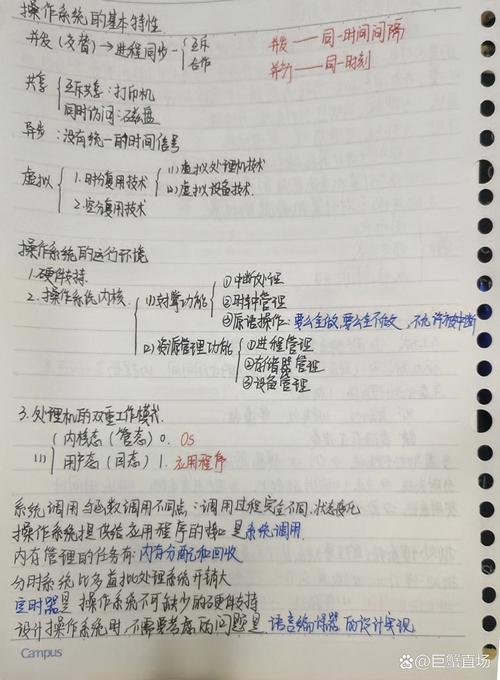 操作系统的基本特性
并发(交替)→进程同步-{互斥 合作
并发——同一时间间隔
并行——同一时刻
共享{互斥共享:打印机
同时访问:磁盘
异步:没有统一的时间信号
虚拟{1.时分复用技术{(1)虚拟处理机技术
(2)虚拟设备技术.
2.空分复用技术
操作系统的运行环境
1.硬件支持.
2.操作系统内核.{(1)支撑功能{①中断处理
②时钟管理
③原语操作:要么全做,要么全不做,不允许被中断
(2)资源管理功能{①进程管理
②存储器管理
③设备管理
3.处理机的双重工作模式.
(1){内核态(管态)0. OS
用户态(目态)1. 应用程序
系统调用与函数调用不同点:调用过程完全不同.状态
操作系统提供给应用程序的接口是系统调用.
内存管理的任务有:内存分配和回收
分时系统比多道批处理系统开销大
定时器是操作系统不可缺少的硬件支持
设计操作系统时,不需要考虑的问题是.语言编译器的设计实现
Campus
@巨蟹直场